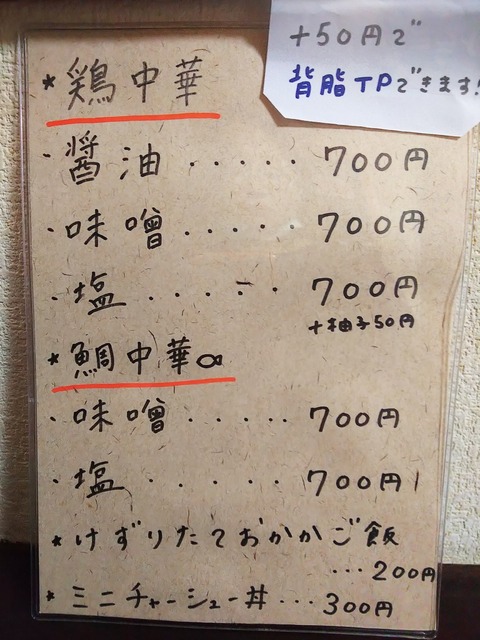 +50円で
背脂TPできます!
* 鶏中華
・醤油・・・・・700円
・味噌・・・・・700円
・塩・・・・・700円
+柚子50円
* 鯛中華
・味噌・・・・・700円
・塩・・・・・700円
* けずりたておかかご飯
・・・200円
* ミニチャーシュー丼・・・300円